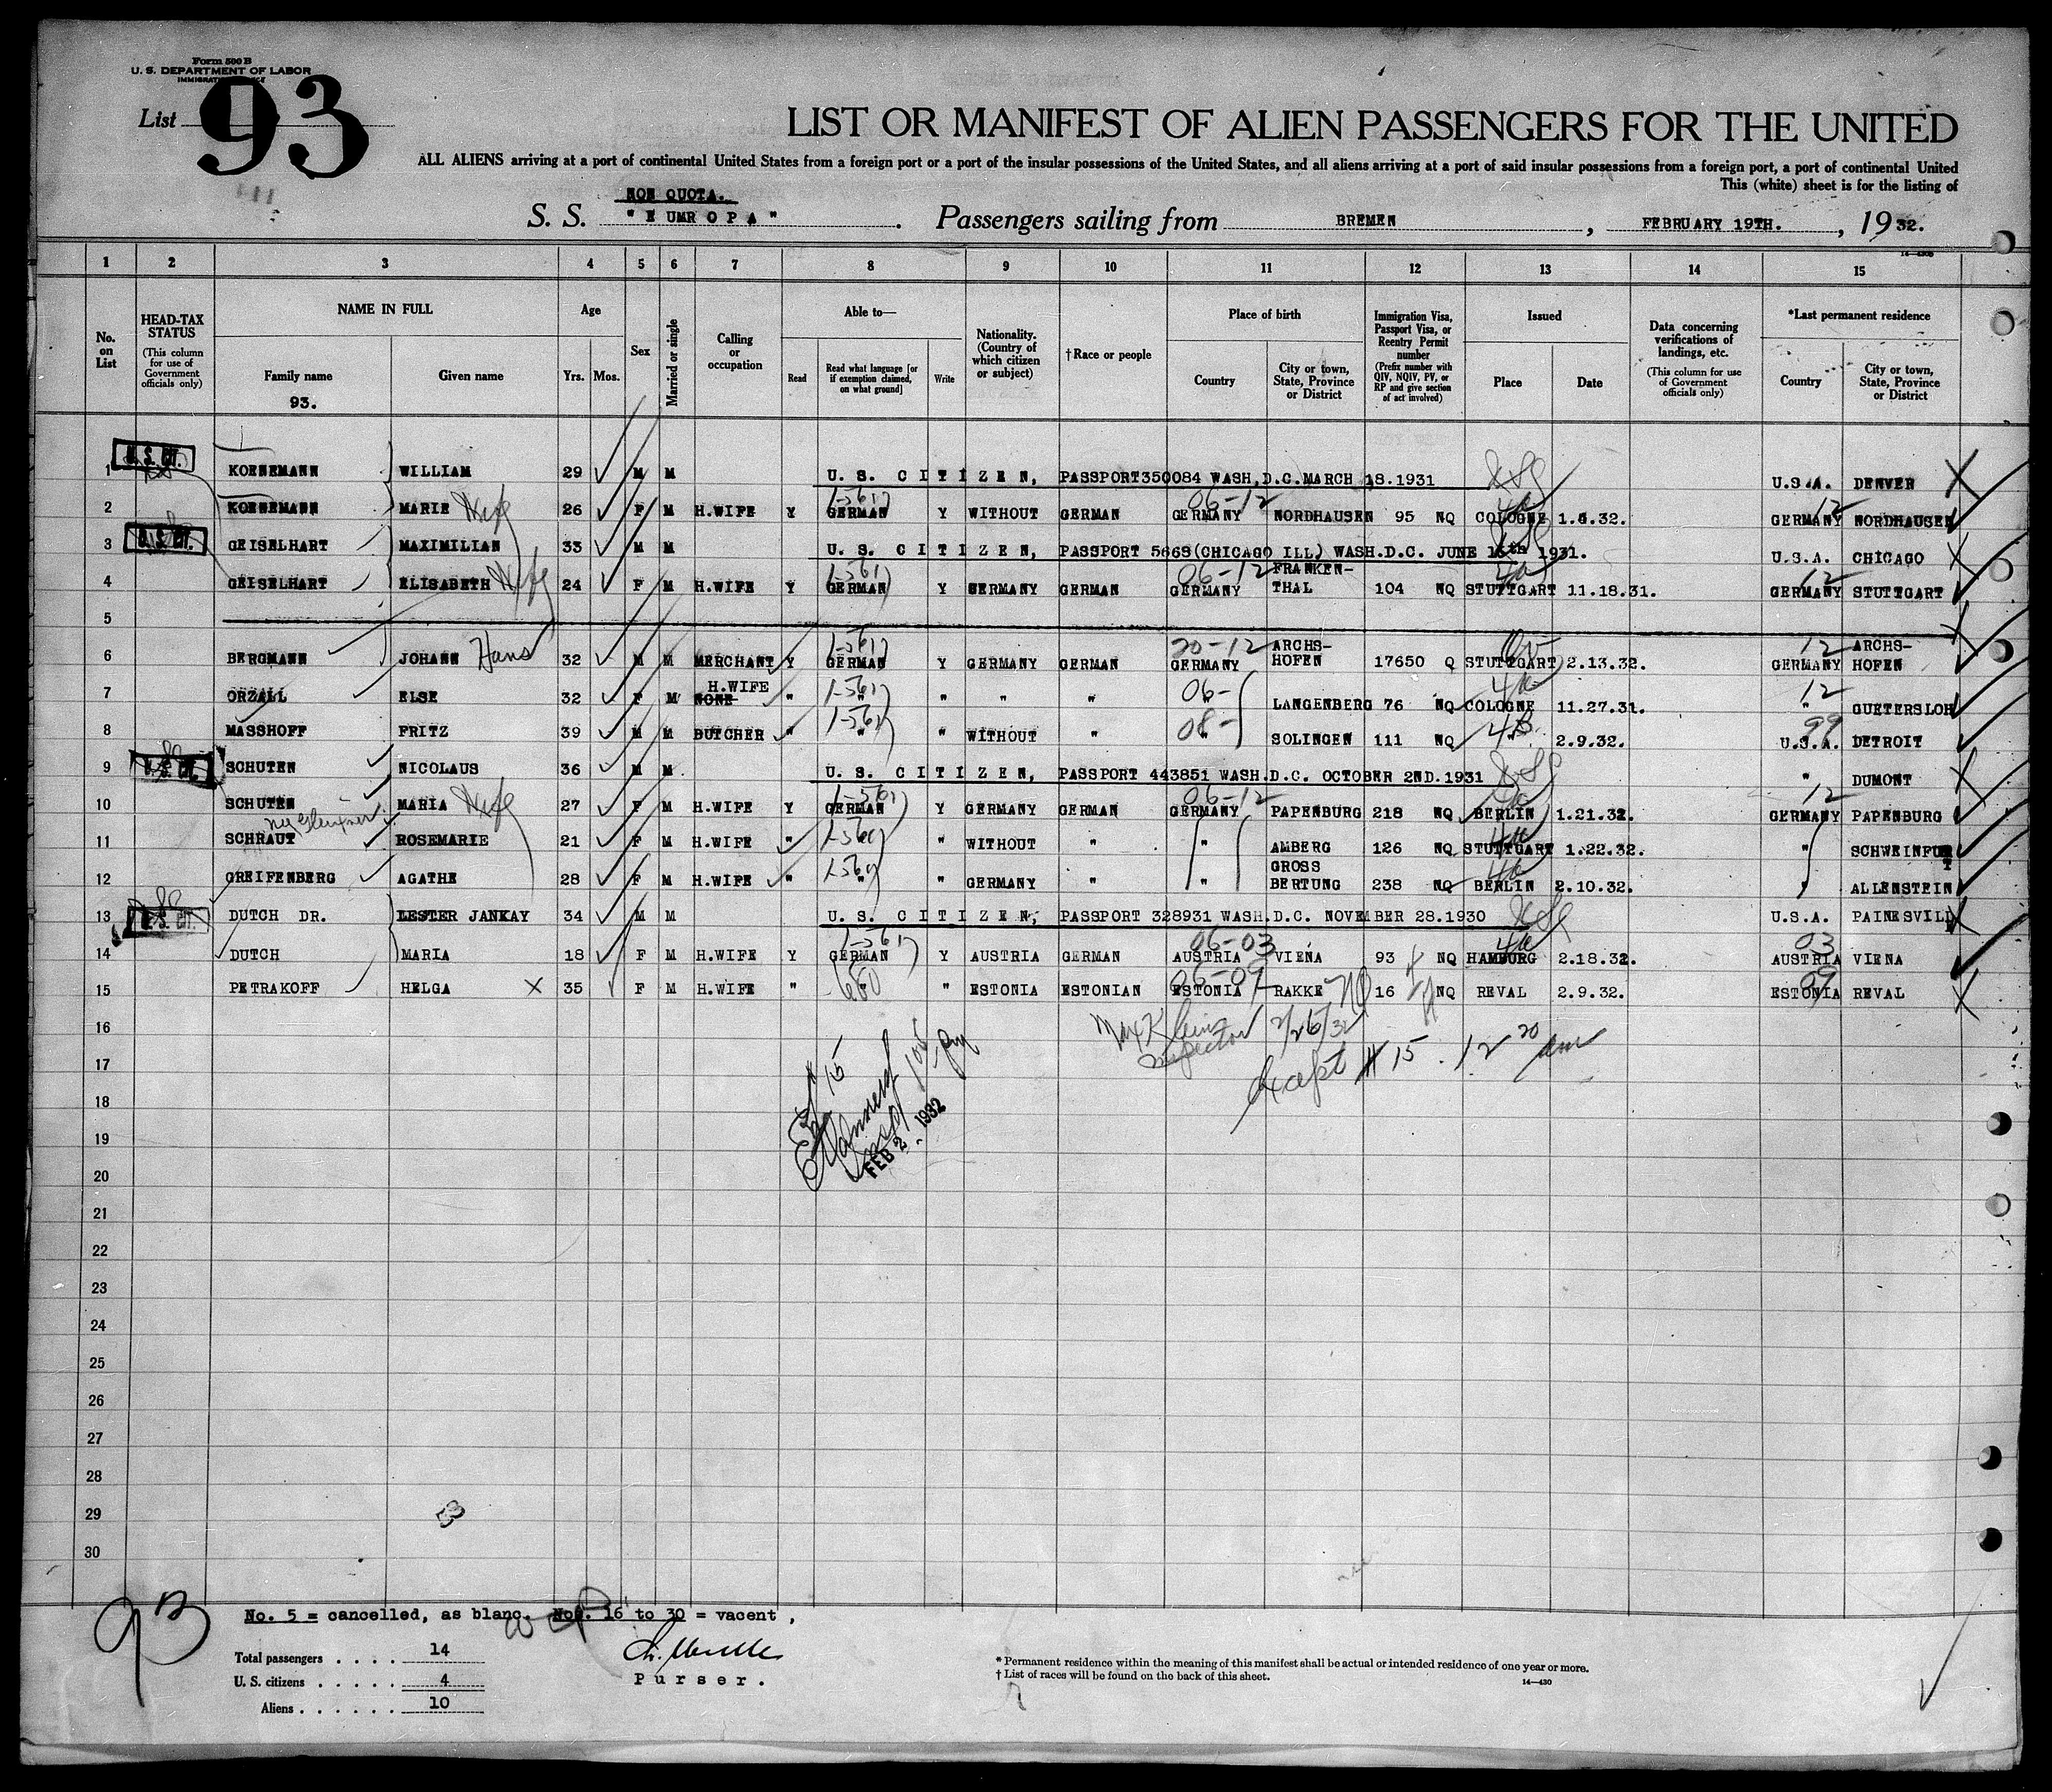 Form 500 B
U. S. DEPARTMENT OF LABOR
List 93
LIST OR MANIFEST OF ALIEN PASSENGERS FOR THE UNITED
ALL ALIENS arriving at a port of continental United States from a foreign port or a port of the insular possessions of the United States, and all aliens arriving at a port of said insular possessions from a foreign port, a port of continental United
This (white) sheet is for the listing of
NON QUOTA.
S. S. " E UMR O P A " . Passengers sailing from BREMEN , FEBRUARY 19TH. , 1932.
1 2 3 4 5 6 7 8 9 10 11 12 13 14 15
No. on List
HEAD-TAX STATUS (This column for use of Government officials only)
NAME IN FULL
Family name 93.
Given name
Age
Yrs. Mos.
Sex
Married or single
Calling or occupation
Able to—
Read
Read what language [or if exemption claimed, on what ground]
Write
Nationality. (Country of which citizen or subject)
†Race or people
Place of birth
Country
City or town, State, Province or District
Immigration Visa, Passport Visa, or Reentry Permit number (Prefix number with QIV, NQIV, PV, or RP and give section of act involved)
Issued
Place
Date
Data concerning verifications of landings, etc. (This column for use of Government officials only)
*Last permanent residence
Country
City or town, State, Province or District
1 U.S. CT. KORNEMANN WILLIAM 29 M M U. S. C I T I Z E N, PASSPORT350084 WASH,D.C.MARCH 18.1931 U.S.A. DENVER
2 KORNEMANN MARIE Wife 26 F M H.WIFE Y GERMAN Y WITHOUT GERMAN 06-12 GERMANY NORDHAUSEN 95 NQ COLOGNE 1.6.32. 12 GERMANY NORDHAUSEN
3 U.S. CT. GEISELHART MAXIMILIAN 33 M M U. S. C I T I Z E N, PASSPORT 5668(CHICAGO ILL) WASH.D.C. JUNE 15th 1931. U.S.A. CHICAGO
4 GEISELHART ELISABETH Wife 24 F M H.WIFE Y GERMAN Y GERMANY GERMAN 06-12 GERMANY FRANKEN-THAL 104 NQ STUTTGART 11.18.31. 12 GERMANY STUTTGART
5
6 BERGMANN JOHANN Hans 32 M M MERCHANT Y GERMAN Y GERMANY GERMAN 20-12 GERMANY ARCHS-HOFEN 17650 Q STUTTGART 2.13.32. 12 GERMANY ARCHS-HOFEN
7 ORZALL ELSE 32 F M H.WIFE NONE " " " " " 06- " LANGENBERG 76 NQ COLOGNE 11.27.31. 12 " GUETERSLOH
8 MASSHOFF FRITZ 39 M M BUTCHER " " " WITHOUT " 08- " SOLINGEN 111 NQ " 2.9.32. 99 U.S.A. DETROIT
9 U.S. CT. SCHUTEN NICOLAUS 36 M M U. S. C I T I Z E N, PASSPORT 443851 WASH.D.C. OCTOBER 2ND.1931 " DUMONT
10 SCHUTEN MARIA Wife 27 F M H.WIFE Y GERMAN Y GERMANY GERMAN 06-12 GERMANY PAPENBURG 218 NQ BERLIN 1.21.32. 12 GERMANY PAPENBURG
11 SCHRAUT ROSEMARIE 21 F M H.WIFE " " " WITHOUT " " AMBERG 126 NQ STUTTGART 1.22.32. " SCHWEINFURT
12 GREIFENBERG AGATHE 28 F M H.WIFE " " " GERMANY " " GROSS BERTUNG 238 NQ BERLIN 2.10.32. " ALLENSTEIN
13 U.S. CT. DUTCH DR. LESTER JANKAY 34 M M U. S. C I T I Z E N, PASSPORT 328931 WASH.D.C. NOVEMBER 28.1930 U.S.A. PAINESVILL
14 DUTCH MARIA 18 F M H.WIFE Y GERMAN Y AUSTRIA GERMAN 06-03 AUSTRIA VIENA 93 NQ HAMBURG 2.18.32. 03 AUSTRIA VIENA
15 PETRAKOFF HELGA X 35 F M H.WIFE " " " ESTONIA ESTONIAN 06-09 ESTONIA RAKKE 16 NQ REVAL 2.9.32. 09 ESTONIA REVAL
16 Max Klein 2/26/32
Inspector
17 except # 15. 12 20 am
18
19
FEB 2 1932
20
21
22
23
24
25
26
27
28
29
30
No. 5 = cancelled, as blanc. Nos. 16 to 30 = vacent ,
Total passengers . . . . 14
U. S. citizens . . . . . 4
Aliens . . . . . . 10
Purser.
* Permanent residence within the meaning of this manifest shall be actual or intended residence of one year or more.
† List of races will be found on the back of this sheet.
14—430